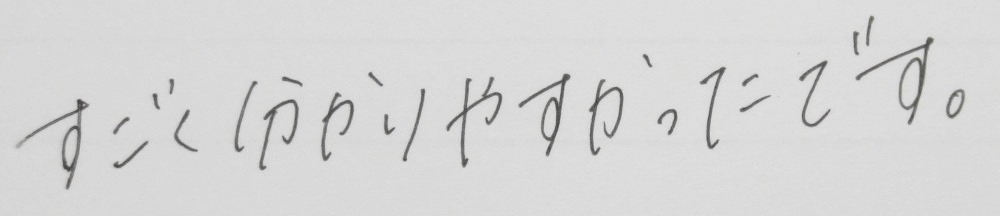 すごく分かりやすかったです。